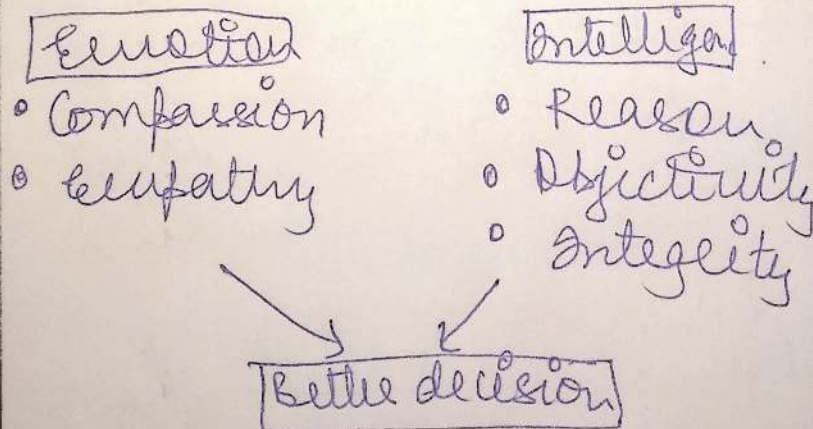 Emotion
• Compassion
• Empathy
Intelligen
• Reason
• Objectivity
• Integrity
Better decision